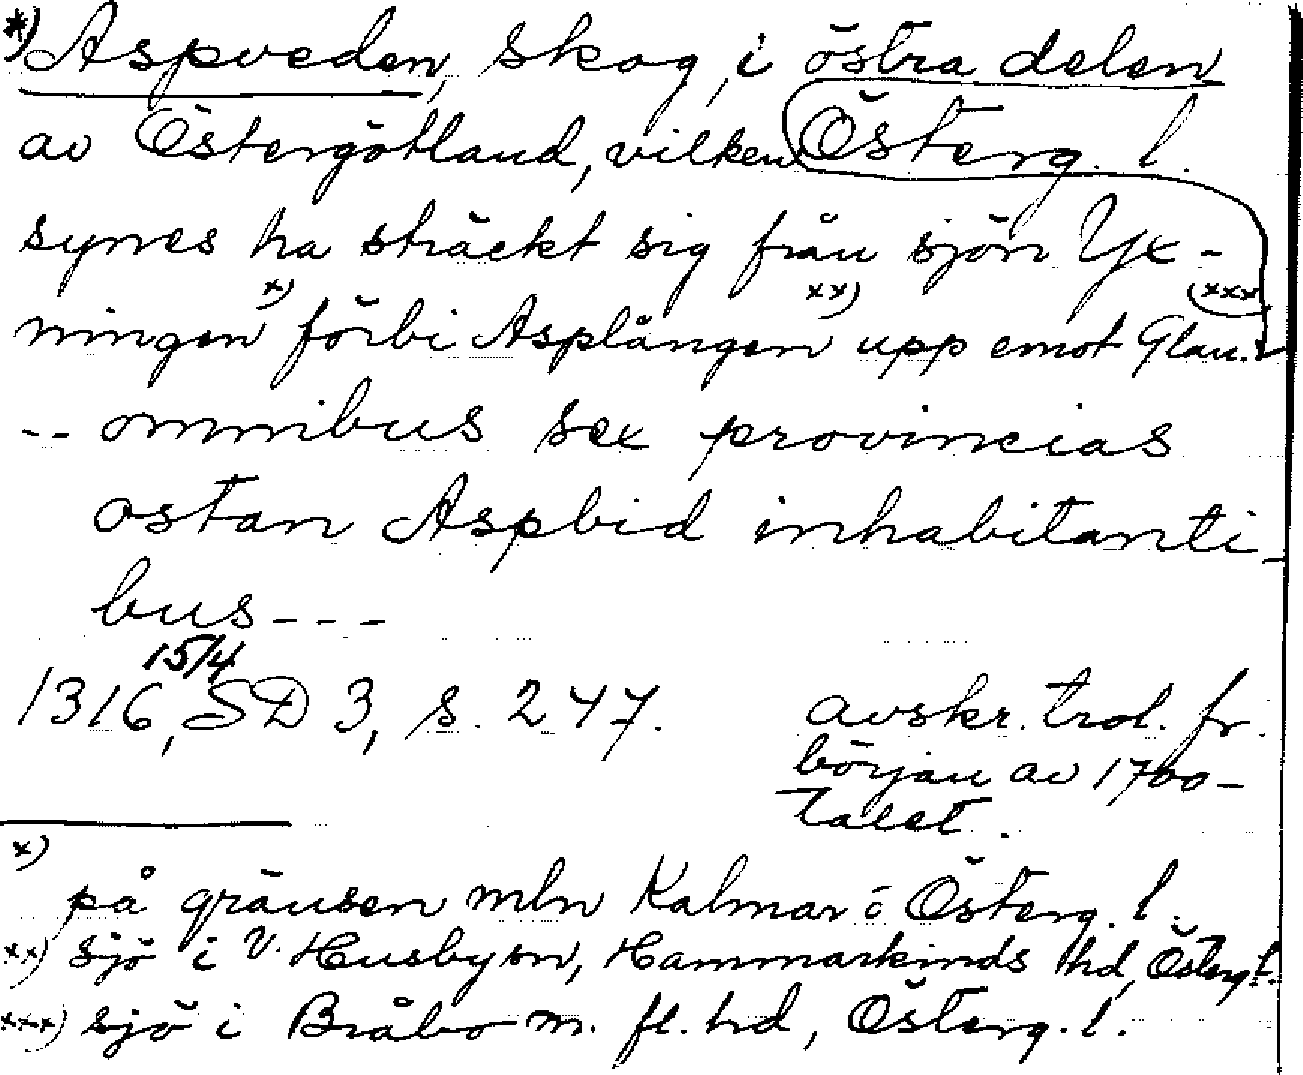 *) Aspveden, skog, i östra delen
av Östergötland, vilken Österg. l.
synes ha sträckt sig från sjön Yx-
ningen x) förbi Asplången xx) upp emot Glan. xxx)
-- omnibus sex provincias
ostan Aspbid inhabitanti-
bus---
1316 15/4, SD 3, s. 247. avskr. trol. fr.
början av 1700-
talet.
x) på gränsen mln Kalmar o Österg. l.
xx) sjö i V. Husby sn, Hammarkinds hd, Österg. l.
xxx) sjö i Bråbo m. fl. hd, Österg. l.